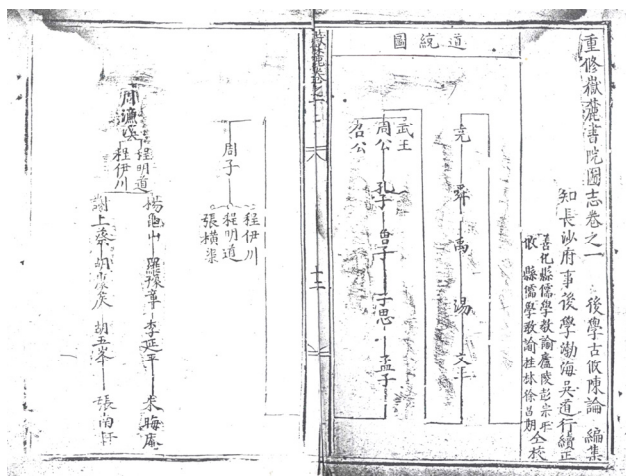 重修嶽麓書院圖志卷之一
後學古攸陳論 編集
知長沙府事後學渤海吳道行續正
善化縣儒學教諭廬陵彭宗旺
攸縣儒學教諭桂林徐昌期 仝校
道統圖
堯 舜 禹 湯 文王
武王
周公 孔子 曾子 子思 孟子
召公
十二
周子
程伊川
程明道
張橫渠
周濂溪
程明道
程伊川
楊龜山 羅豫章 李延平 朱晦庵
謝上蔡 胡 五峯 張南軒